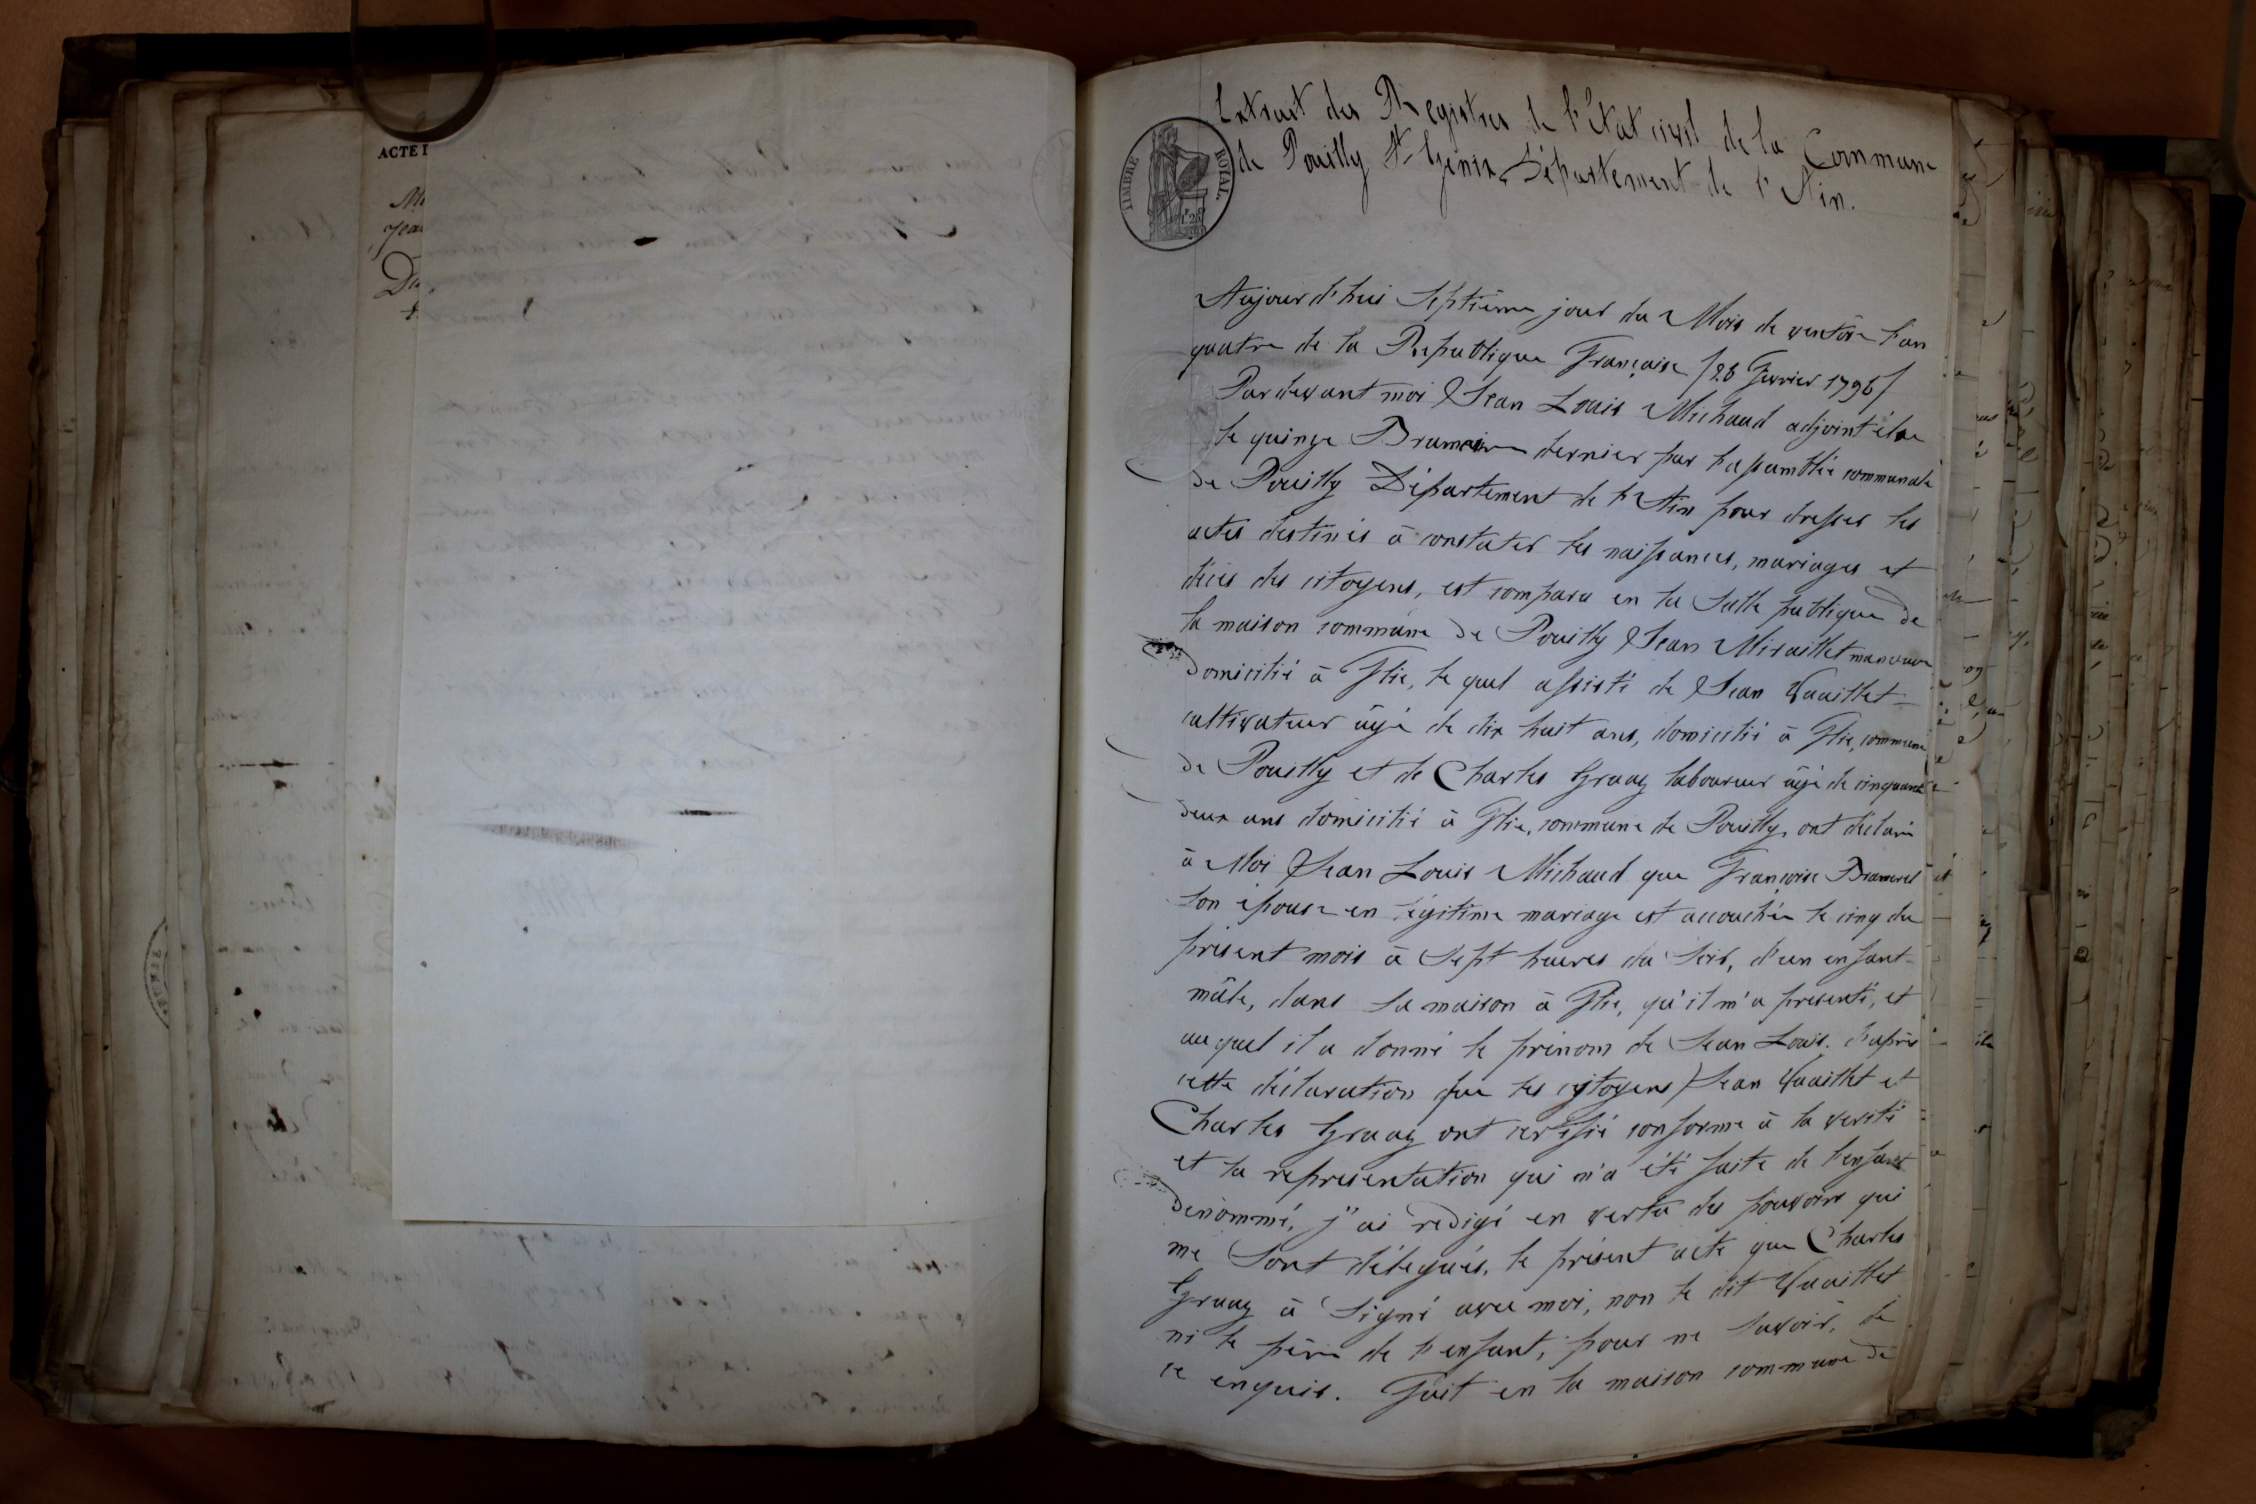 ACTE
Extrait des Registres de l'Etat civil de la Commune
de Pouilly St Genix, Département de l'Ain.
TIMBRE ROYAL.
Aujourd'hui Septième jour du Mois de ventôse l'an
quatre de la Republique Française / 26 Fevrier 1796 /
Pardevant moi Jean Louis Michaud adjoint élue
le quinze Brumaire dernier par l'assemblée communale
de Pouilly Département de l'Ain pour dresser les
actes destinés à constater les naissances, mariages et
décès des citoyens, est comparu en la Salle publique de
la maison commune de Pouilly Jean Miraillet manœuvre
domicilié à Flie, le quel assisté de Jean Vuaillet
cultivateur âgé de dix huit ans, domicilié à Flie, commune
de Pouilly et de Charles Gruaz laboureur âgé de cinquante
deux ans domicilié à Flie, commune de Pouilly, ont déclaré
à Moi Jean Louis Michaud que Françoise
son épouse en légitime mariage est accouchée le cinq du
présent mois à Sept heures du Soir, d'un enfant
mâle, dans sa maison à Flie, qu'il m'a presenté, et
au quel il a donné le prénom de Jean Louis. d'après
cette déclaration que les citoyens Jean Vuaillet et
Charles Gruaz ont certifié conforme à la verité
et la représentation qui m'a été faite de l'enfant
dénommé, j'ai redigé en vertu des pouvoirs qui
me Sont délégués, le présent acte que Charles
Gruaz à Signé avec moi, non le dit Vuaillet
ni le père de l'enfant, pour ne Savoir, de
ce enquis. Fait en la maison commune de